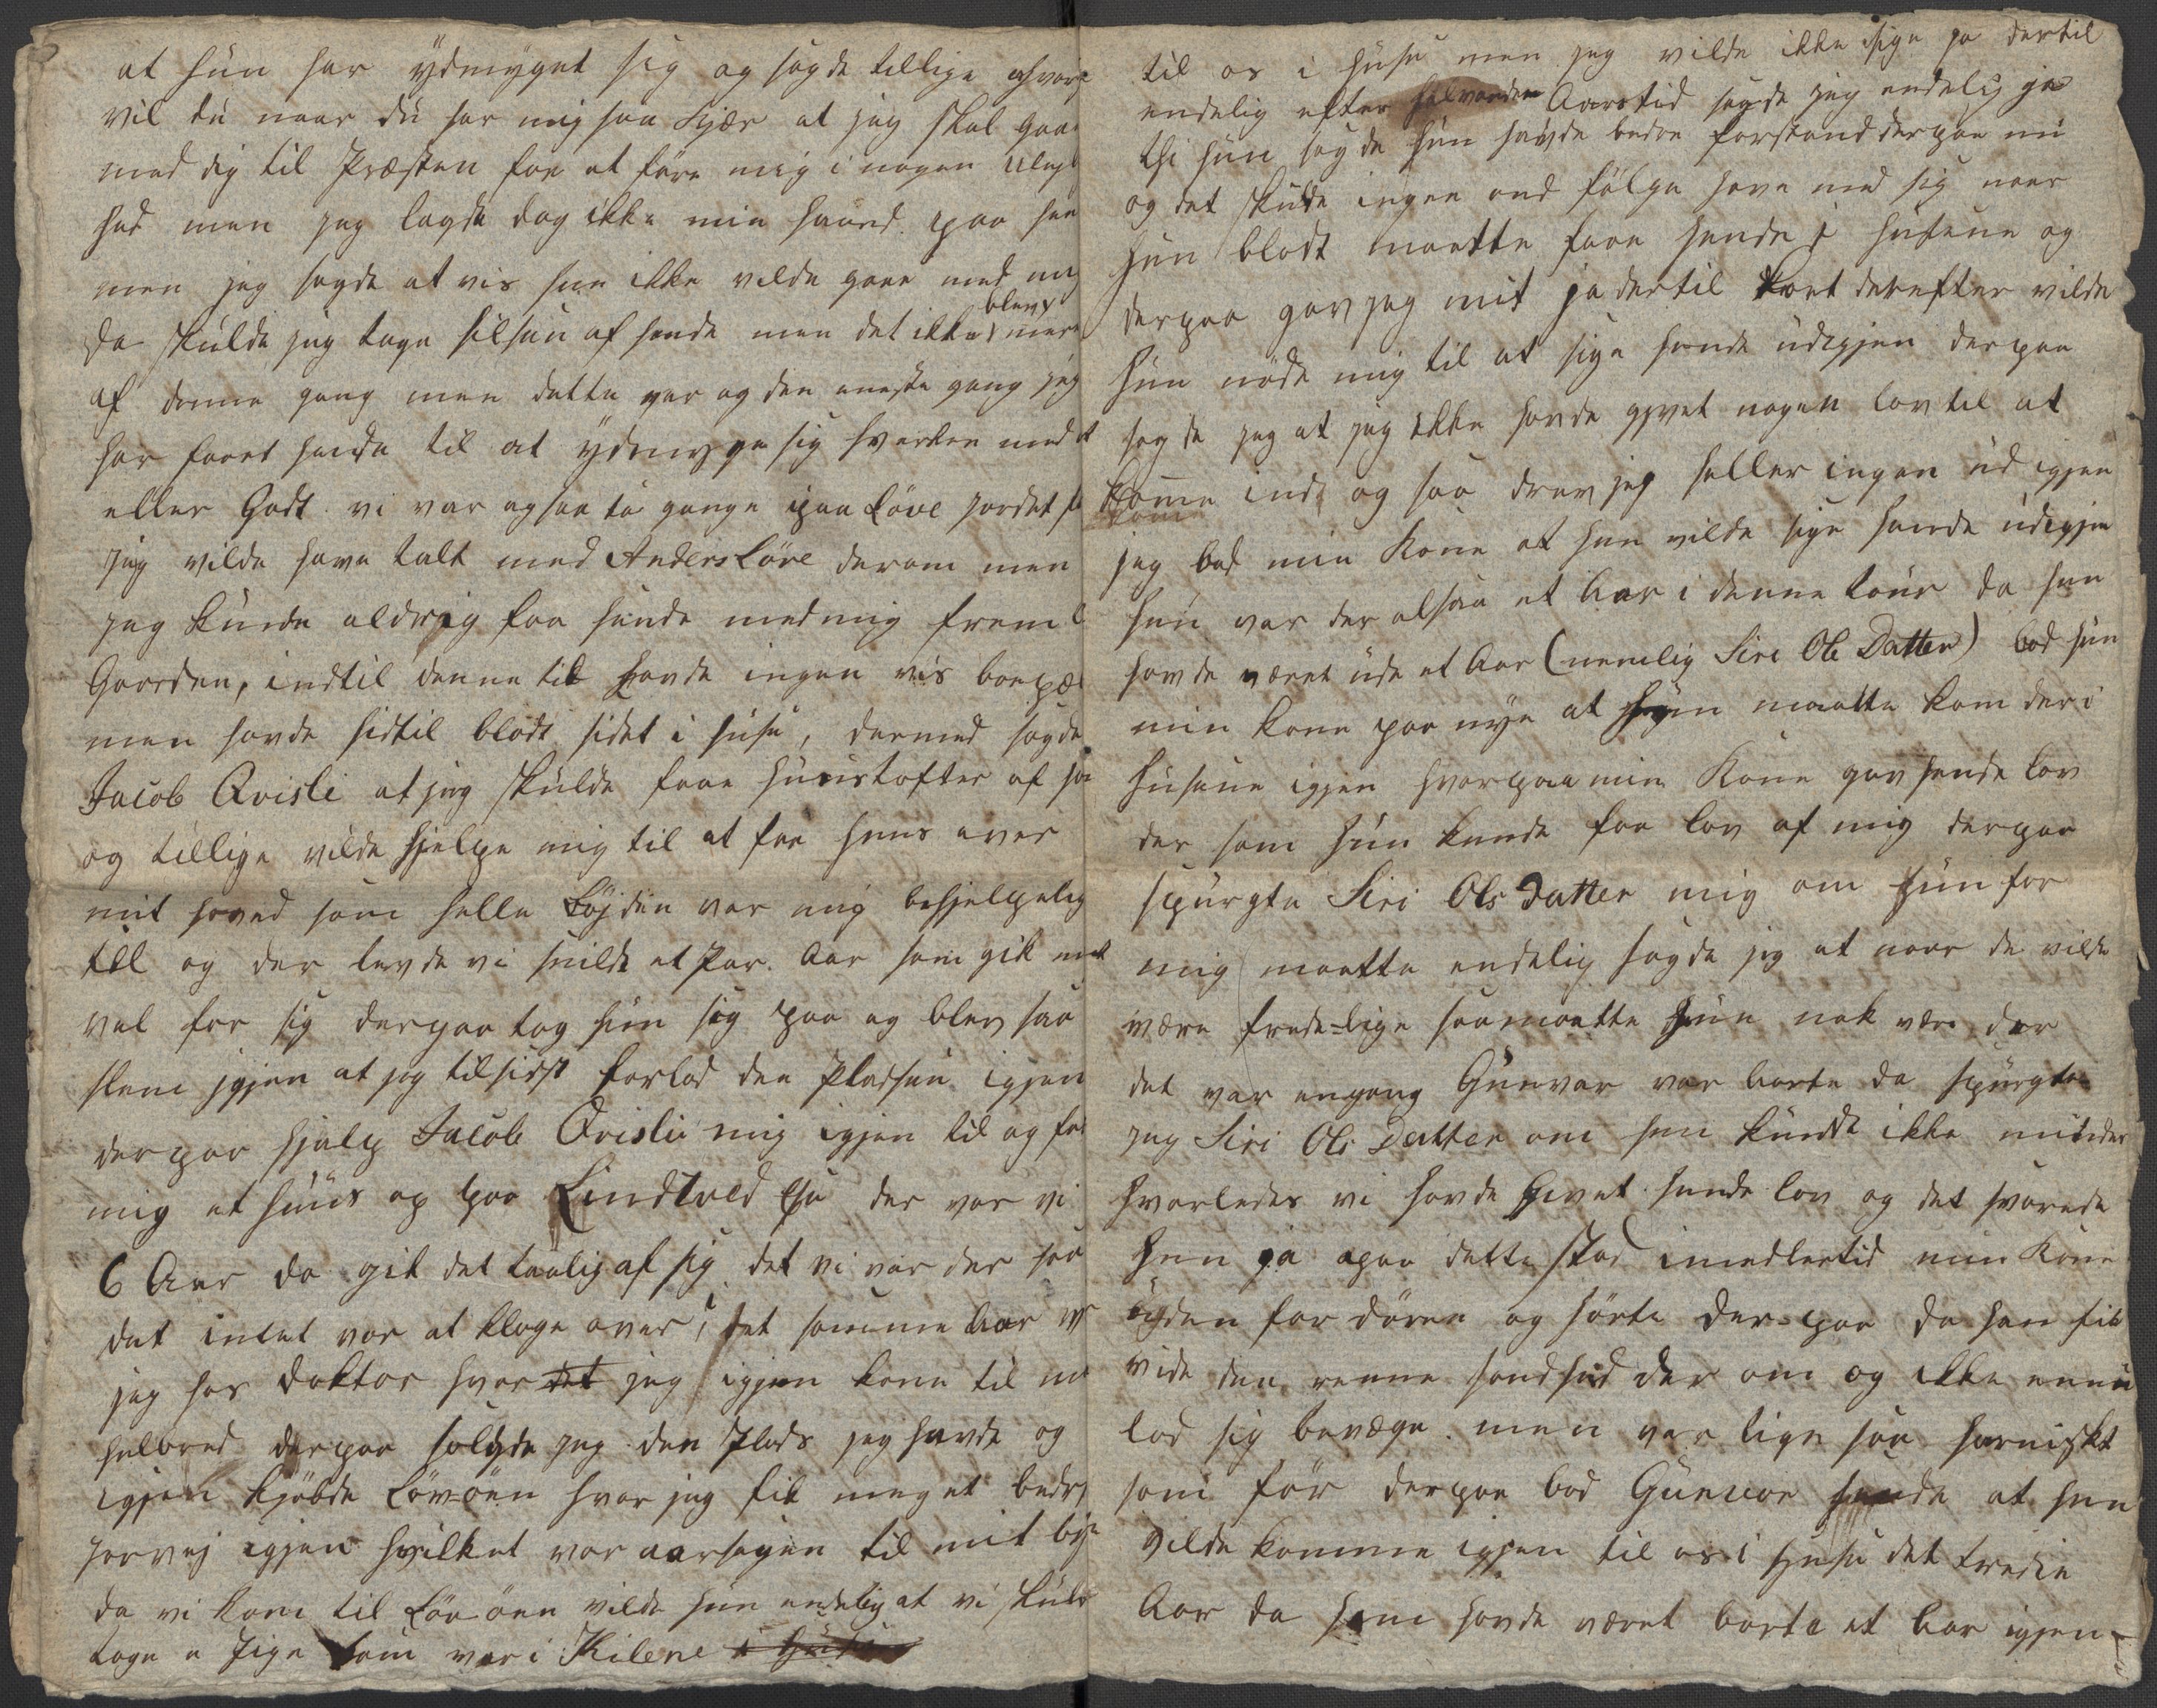 at hun har ydmyget sig og sagde tillige hvor
vil du naar du har mig saa Kjær at jeg skal gaa
med dig til Præsten for at føre mig i nogen Uleg
hed men jeg lagde dog ikke min haand paa hen
men jeg sagde at vis hun ikke vilde gaae med mig
blev
da skulde jeg tage hilsen af hende men det ikke mere
af denne gang men dette var og den eneste gang jeg
har faaet hende til at ydmyge sig hverken med
eller Godt. vi var ogsaa to gange paa Løve jordet
jeg vilde have talt med Anders Løve derom men
jeg kunde aldrig faa hende med mig frem
Gaarden, indtil denne tid havde ingen vis boepæl
men havde hidtil blodt sidet i huse, dermed sagde
Jacob Qvisli at jeg skulde faae huustofter af
og tillige vilde hjelpe mig til at faa huus over
mit hoved som helle Løjden var mig behjelpelig
till og der levde vi snildt et Par Aar som gik
vel for sig derpaa tog hun sig paa og blev saa
slem igjen at jeg tilsidst forlod den Pladsen igjen
derpaa hjalp Jacob Qvislie mig igjen til og
mig et huus op paa Lindtved der var vi
6 Aar da gik det taalig af sig det vi var der saa
det intet var at klage over, i det samme Aar
jeg hos Doktor hvor det jeg igjen kom til
helbred derpaa solgde jeg den Plads jeg havde og
igjen kjøbde Løvøen hvor jeg fik meget bedre
igjen hvilket var aarsagen til mit
da vi kom til Løvøen vilde hun endelig at vi skuld
tage e Pige som var i Kilene i huse
til os i huse men jeg vilde ikke sige ja dertil
endelig efter halvanden Aarstid sagde jeg endelig ja
thi hun sagde hun havde bedre forstand derpaa nu
og det skulde ingen ond følge have med sig naar
hun blodt maatte faae hende i husene og
derpaa gav jeg mit ja dertil kort derefter vilde
hun nøde mig til at sige hende ud igjen derpaa
sagde jeg at jeg ikke havde gjvet nogen lov til at
komme ind og saa drev jeg heller ingen ud igjen
jeg bad min Kone at hun vilde sige hende ud igjen
hun var der altsaa et Aar i denne tour da hun
havde været ude et Aar (nemlig Siri Ols Datter) bad hun
min kone paa nye at hun maatte kom der i
husene igjen hvorpaa min Kone gav hende lov
der som hun kunde faa lov af mig derpaa
spurgte Siri Ols Datter mig om hun for
mig maatte endelig sagde jeg at naar de vilde
være fredelige saa maatte hun nok være der
det var engang Gunvor var borte da spurgte
jeg Siri Ols Datter om hun kunde ikke mindes
hvorledes vi havde Givet hende lov og det svarede
hun ja paa dette stod imedlertid min Kone
uden for døren og hørte der paa da han fik
vide den renne sandhed der om og ikke ennu
lod sig bevæge men var lige saa harniskt
som før derpaa bad Gunvor hende at hun
vilde komme igjen til os i huse det tredie
Aar da hun havde været borte et Aar igjen